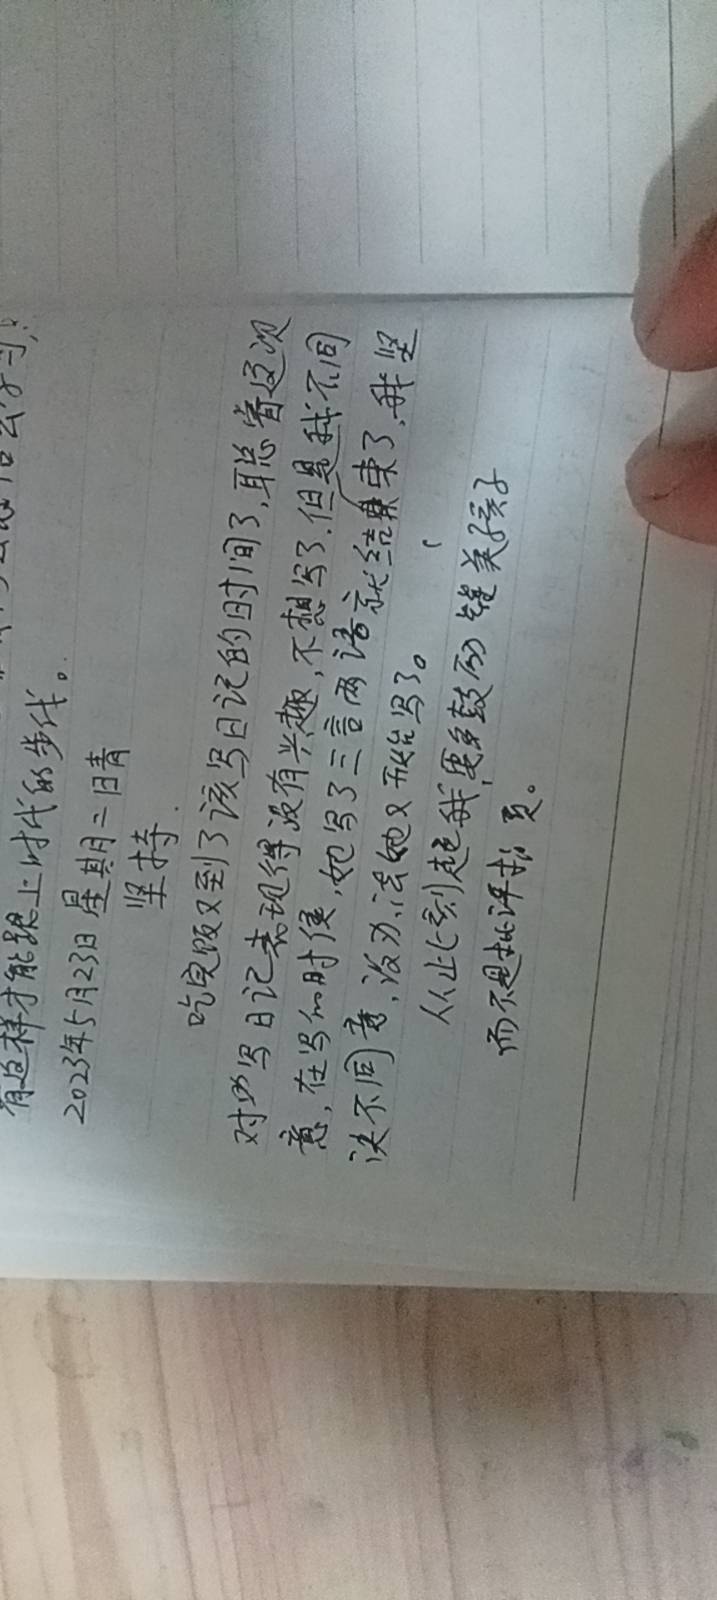 有这样才能跟上时代的步伐。
2023年5月23日 星期二 日青
坚持.
吃完饭又到了该写日记的时间了,聪睿这次
对于写日记表现得没有兴趣,不想写了.但是我不同
意,在写的时候,她写了三言两语就结束了,我坚
决不同意,没办法她又开始写了。
从此刻起我,要多鼓励 赞美孩子
而不是批评指责。